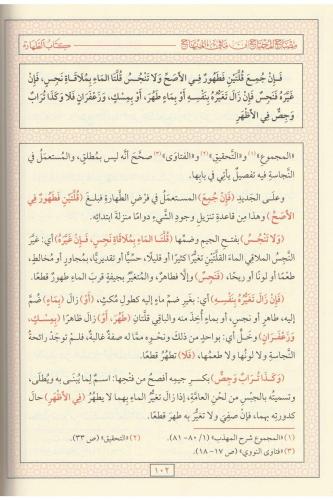 كتاب الطهارة
فَإِنْ جُمِعَ قُلَّتَيْنِ فَطَهُورٌ فِي الأَصَحِّ وَلَا تَنْجُسُ قُلَّتَا المَاءِ بِمُلَاقَاةِ نَجِسٍ، فَإِنْ
غَيَّرَهُ فَنَجِسٌ، فَإِنْ زَالَ تَغَيُّرُهُ بِنَفْسِهِ أَوْ بِمَاءٍ طَهُرَ، أَوْ بِمِسْكٍ، وَزَعْفَرَانٍ فَلَا وَكَذَا تُرَابٌ
وَجِصٌّ فِي الأَظْهَرِ
«المجموع»(١) و«التحقيق»(٢) و«الفتاوى»(٣) صحَّح أنَّه ليس بمُطلَقٍ، والمُستعمَلُ في
النَّجاسةِ فيه تفصيلٌ يأتي في بابِها.
وعلى الجَديدِ (فَإِنْ جُمِعَ) المستعمَلُ في فَرْضِ الطَّهارةِ فبلَغَ (قُلَّتَيْنِ فَطَهُورٌ فِي
الأَصَحِّ) وهذا مِن قاعدةِ تنزيلِ وجودِ الشَّيءِ دوامًا منزلةَ ابتدائِه.
(وَلَا تَنْجُسُ) بفتحِ الجيمِ وضمِّها (قُلَّتَا المَاءِ بِمُلَاقَاةِ نَجِسٍ، فَإِنْ غَيَّرَهُ) أي: غيَّرَ
النَّجَسُ الملاقي الماءَ القُلَّتَيْنِ تغيُّرًا كثيرًا أو قليلًا، حسِّيًّا أو تقديريًّا، بمُجاورٍ أو مُخالطٍ،
طَعْمًا أو لَونًا أو ريحًا، (فَنَجِسٌ) وإلَّا فطاهرٌ، والمُتغيِّرُ بجيفةٍ قربَ الماءِ طهورٌ قطعًا.
(فَإِنْ زَالَ تَغَيُّرُهُ بِنَفْسِهِ) أي: بغيرِ ضمِّ ماءٍ إليه كطولِ مُكثٍ، (أَوْ) زالَ (بِمَاءٍ) ضُمَّ
إليه، طاهرٍ أو نجسٍ، أو بماءٍ أُخِذَ منه والباقي قُلَّتانِ (طَهُرَ، أَوْ) زالَ ظاهرًا (بِمِسْكٍ،
وَزَعْفَرَانٍ) وخَلٍّ أي: بواحدٍ من ذلك ونحوِه ممَّا له صفةٌ غالبةٌ، فلم توجَدْ رائحةُ
النَّجاسةِ ولا لونُها ولا طعمُها، (فَلَا) تَطْهُرُ قطعًا.
(وَكَذَا تُرَابٌ وَجِصٌّ) بكسرِ جيمِه أفصحُ من فتحِها: اسمٌ لِما يُبنَى به ويُطلَى،
وتسميتُه بالجِبْسِ من لحنِ العامَّةِ، إذا زالَ تغيُّرُ الماءِ بهما لا يطهُرُ (فِي الأَظْهَرِ) حالَ
كدورتِه بهما، فإنْ صفِيَ ولا تغيُّرَ به طَهُرَ جزمًا.
(١) «المجموع شرح المهذب» (١/ ٨٠- ٨١). (٢) «التحقيق» (ص ٣٣).
(٣) «فتاوى النووي» (ص ١٧- ١٨).
١٠٢